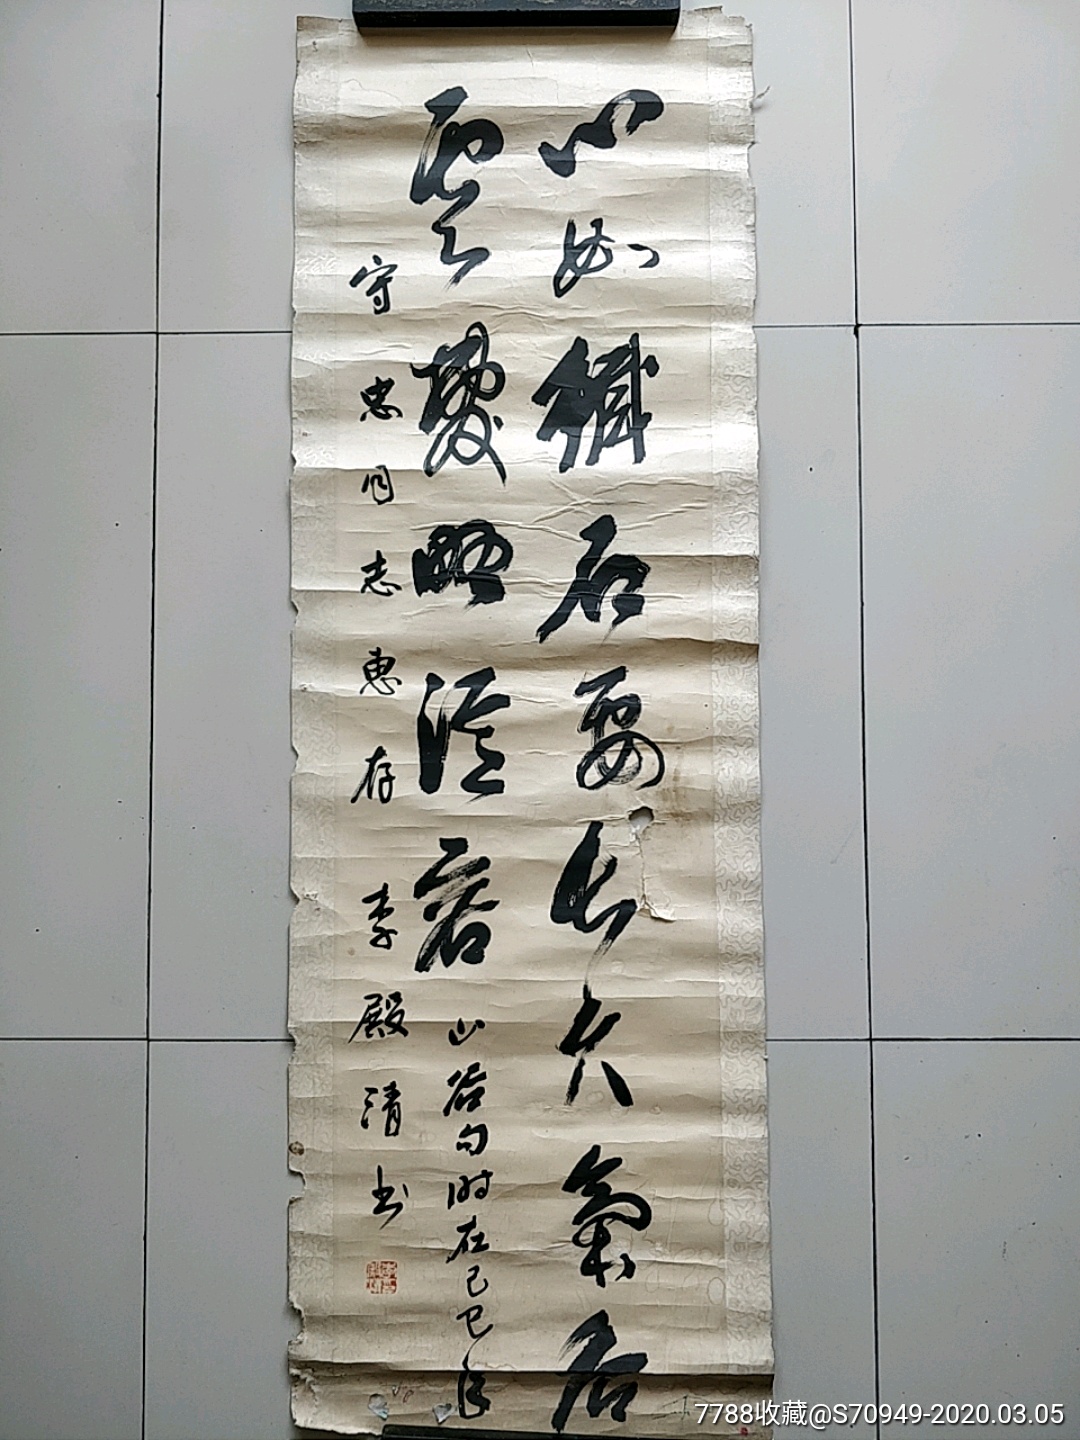 心如鐵石要長久氣吞
雲夢略從容
山谷句时在己巳年
守忠同志惠存李殿清书
7788收藏@S70949-2020.03.05